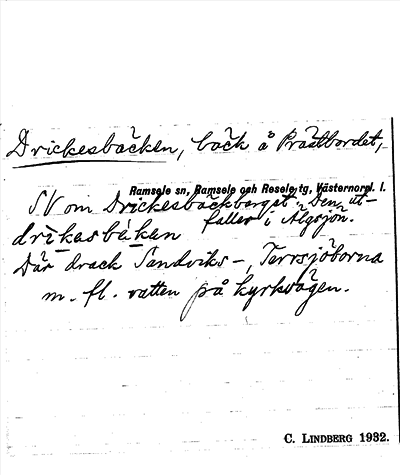 Drickesbäcken, bäck å Prästbordet,
Ramsele sn, Ramsele och Resele tg, Västernorrl. l.
SV om Drickesbäckberget. Den ut-
faller i Älgsjön.
drikasbäken
Där drack Sandviks-, Terrsjöborna
m. fl. vatten på kyrkvägen.
C. LINDBERG 1932.